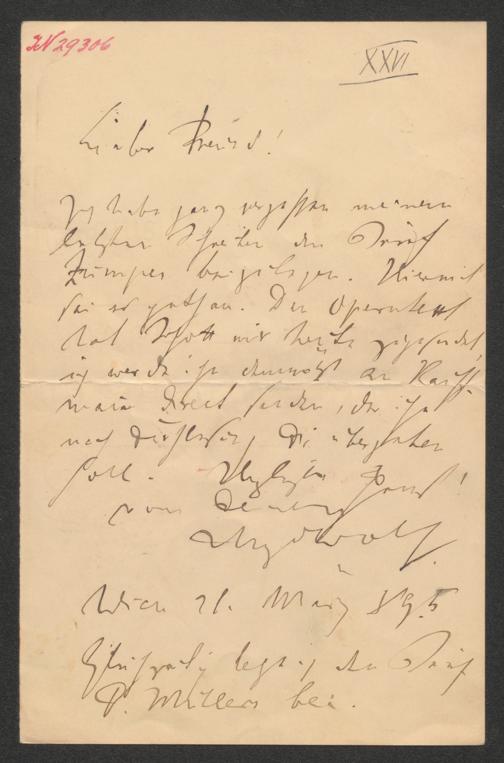 IN 29306
XXVI
Lieber Freund!
Ich habe ganz vergessen meinem
letzten Schreiben den Brief
Zumpes beizulegen. Hiermit
sei es gethan. Den Operntext
hat Schott mir heute zugesendet
ich werde ihn demnächst an Kauff-
mann direct senden, der ihn
nach Durchlesung Dir übergeben
soll. Herzlichen Gruß!
von Deinem
Hugo Wolf.
Wien 21. März 895
Gleichzeitig lege ich den Brief
P. Müllers bei.